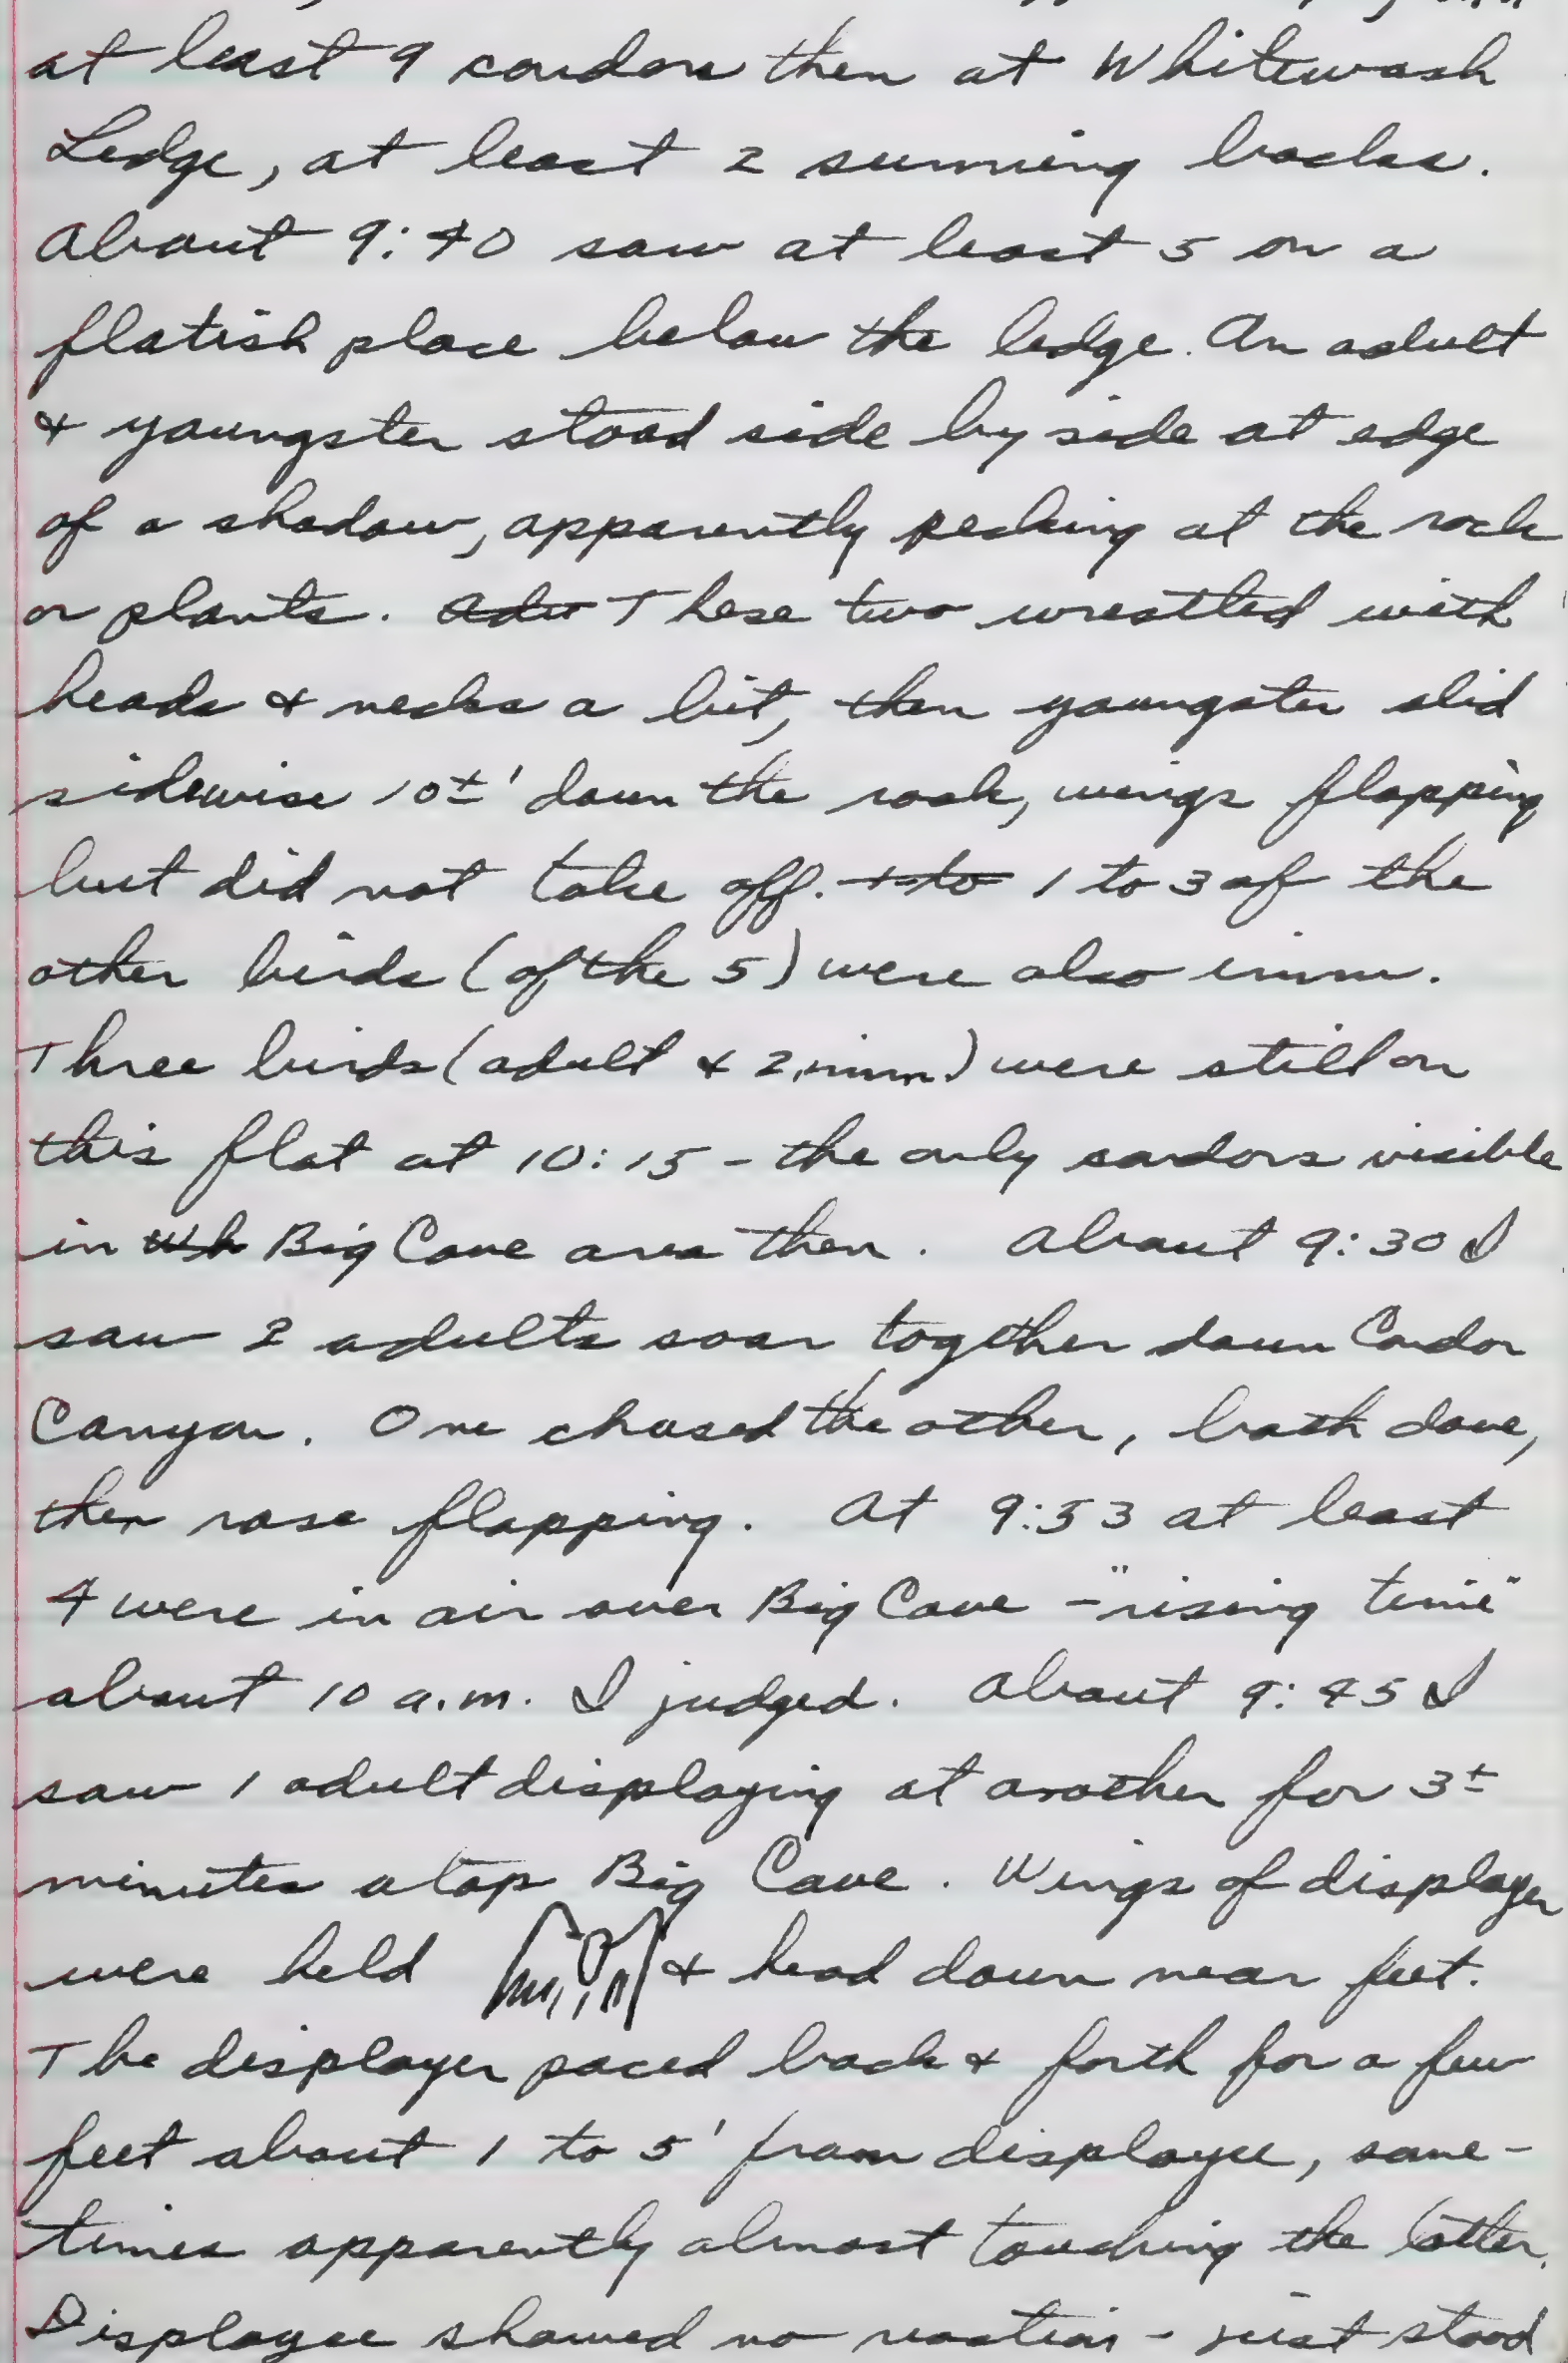 at least 9 condors then at Whitewash
Ledge, at least 2 sunning backs.
About 9:40 saw at least 5 on a
flatish place below the ledge. An adult
& youngster stood side by side at edge
of a shadow, apparently pecking at the rock
or plants. Adu These two wrestled with
heads & necks a bit, then youngster slid
sidewise 10±' down the rock, wings flapping
but did not take off. 1 to 1 to 3 of the
other birds (of the 5) were also imm.
Three birds (adult & 2 imm.) were still on
this flat at 10:15 - the only condors visible
in Wh Big Cave area then. About 9:30 I
saw 2 adults soar together down Condor
Canyon. One chased the other, both dove,
then rose flapping. At 9:53 at least
4 were in air over Big Cave - "rising time"
about 10 a.m. I judged. About 9:45 I
saw 1 adult displaying at another for 3±
minutes atop Big Cave. Wings of displayer
were held & head down near feet.
The displayer paced back & forth for a few
feet about 1 to 5' from displayee, some-
times apparently almost touching the latter.
Displayee showed no reaction - just stood